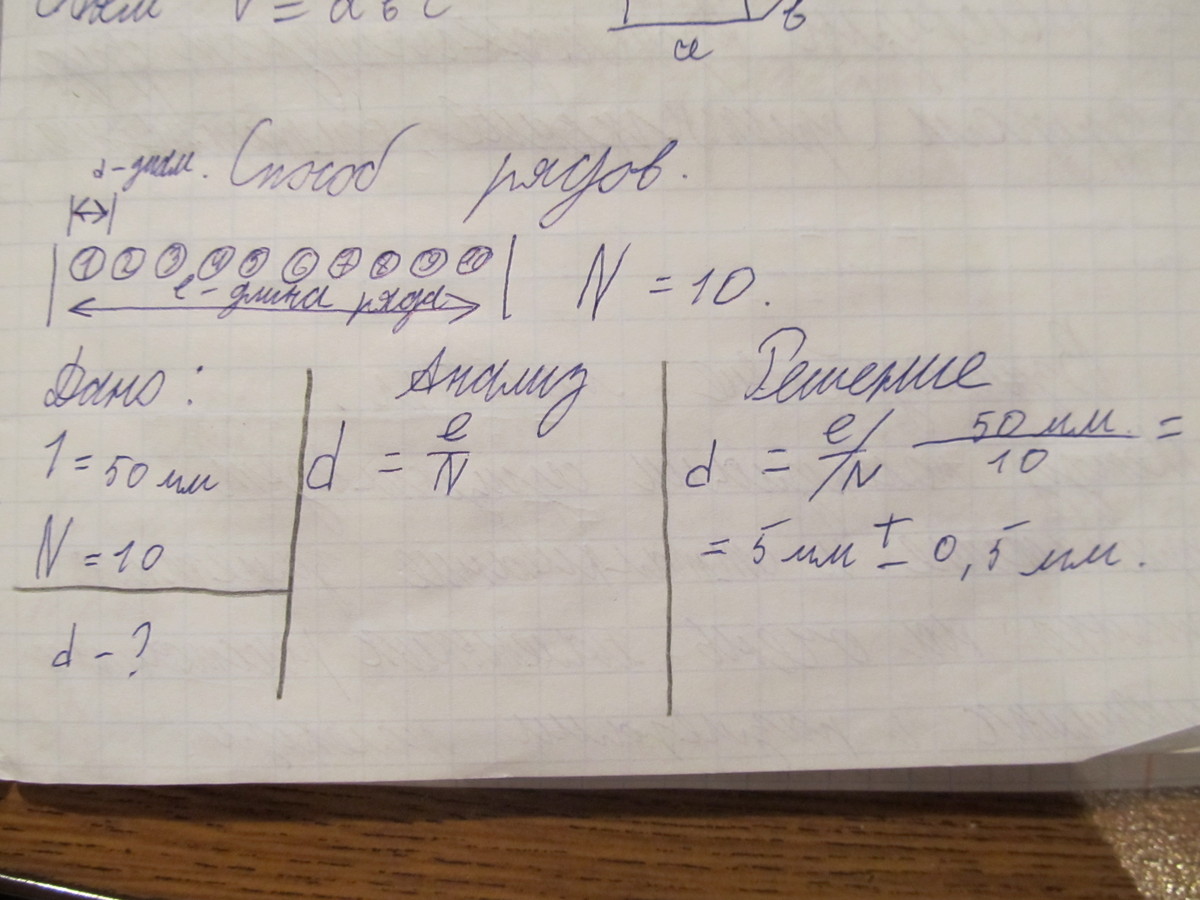 V = a b c
в
a
d - диам. Способ рядов.
1 2 3 4 5 6 7 8 9 10
l - длина ряда
N = 10.
Дано: Анализ Решение
l = 50 мм d = l/N d = l/N 50 мм/10 =
N = 10 = 5 мм ± 0,5 мм.
d - ?